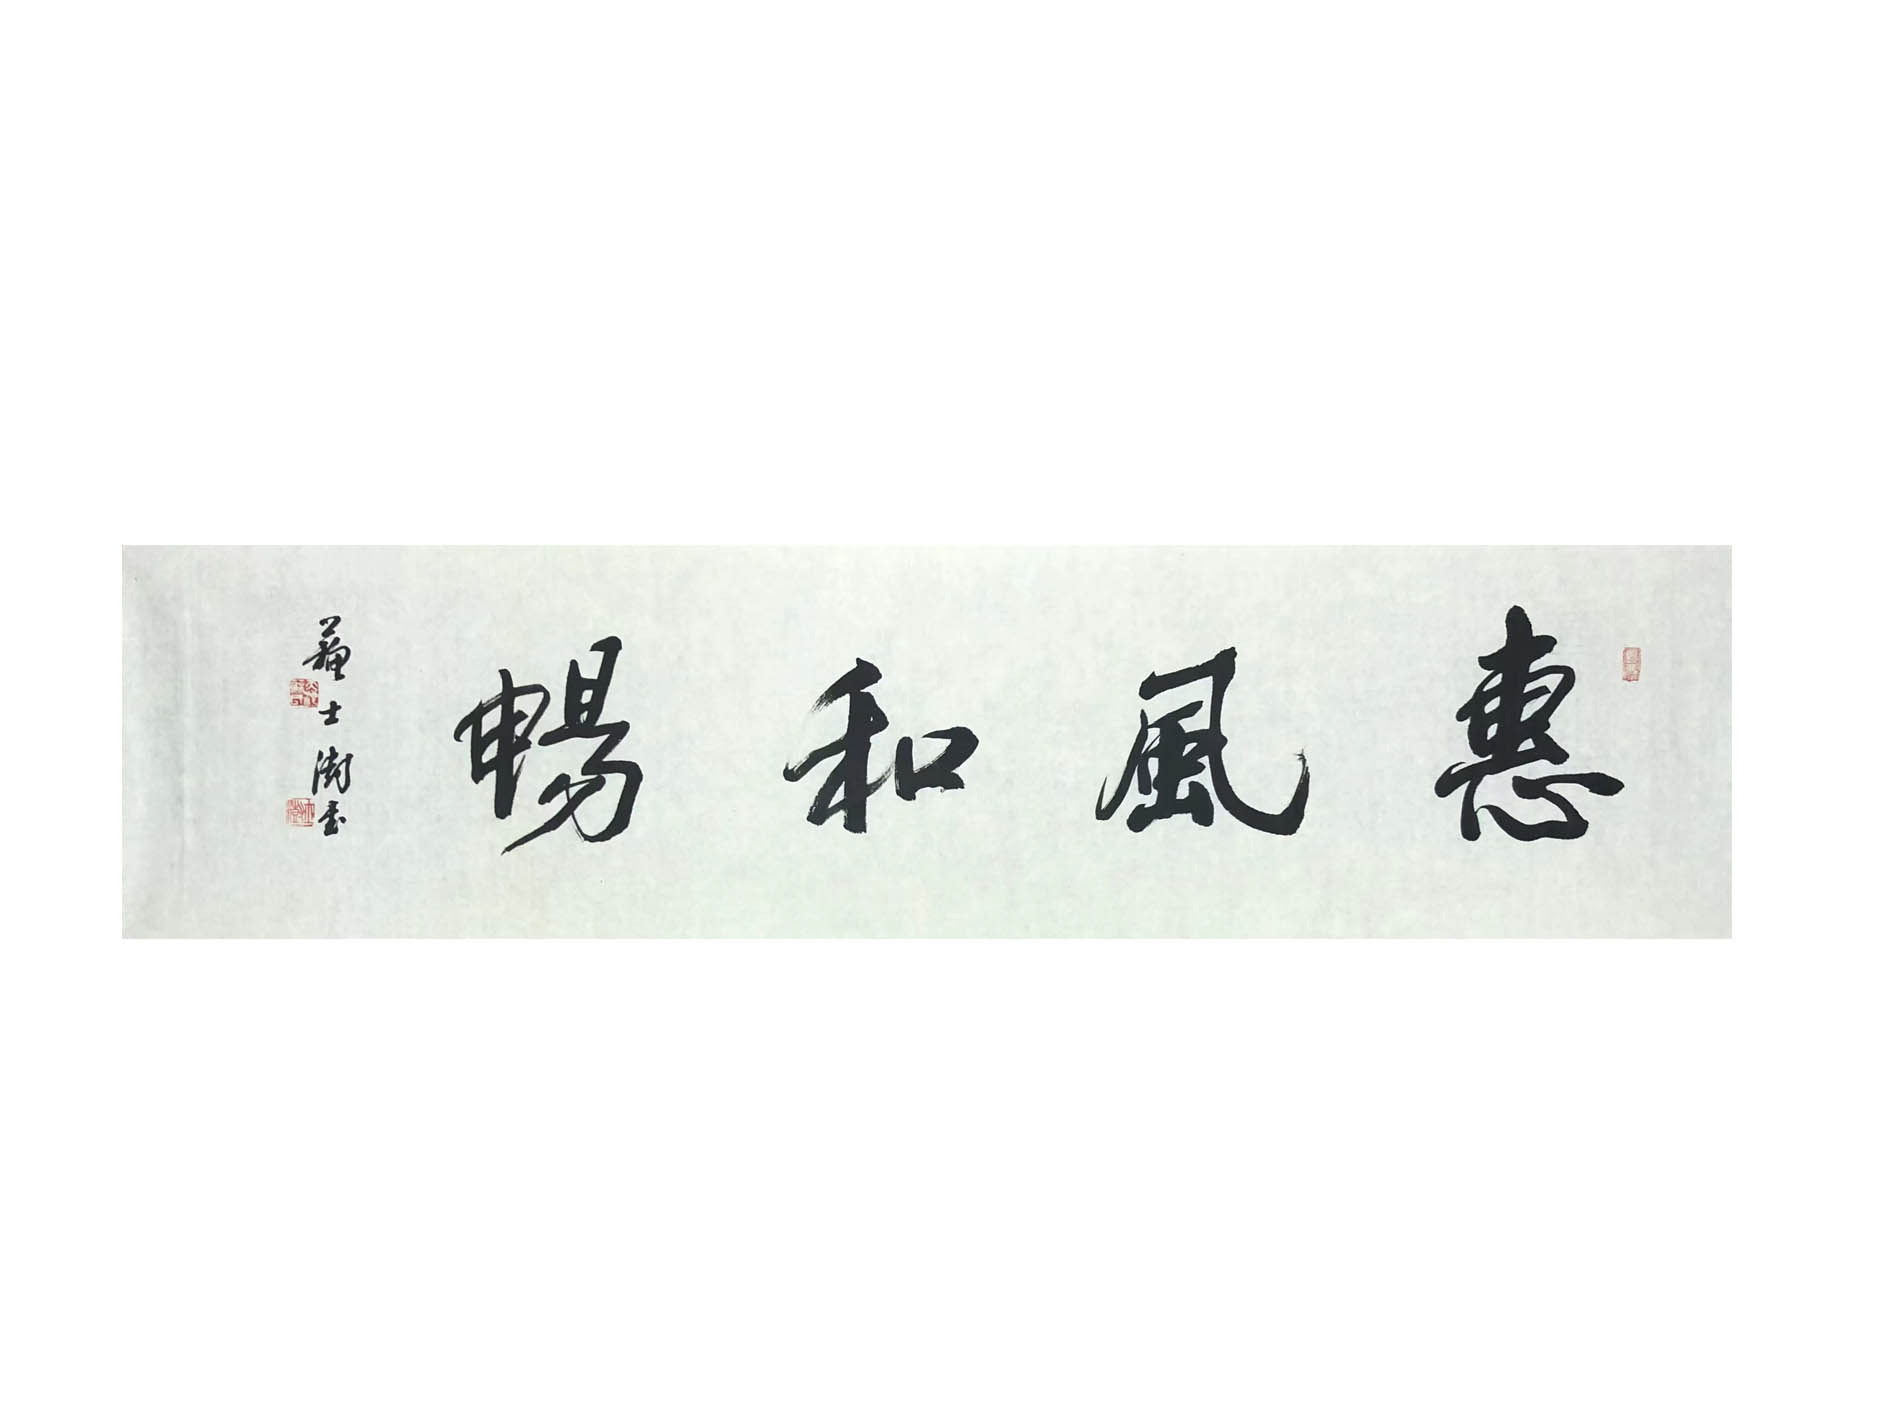 惠風和暢
蘇士澍書